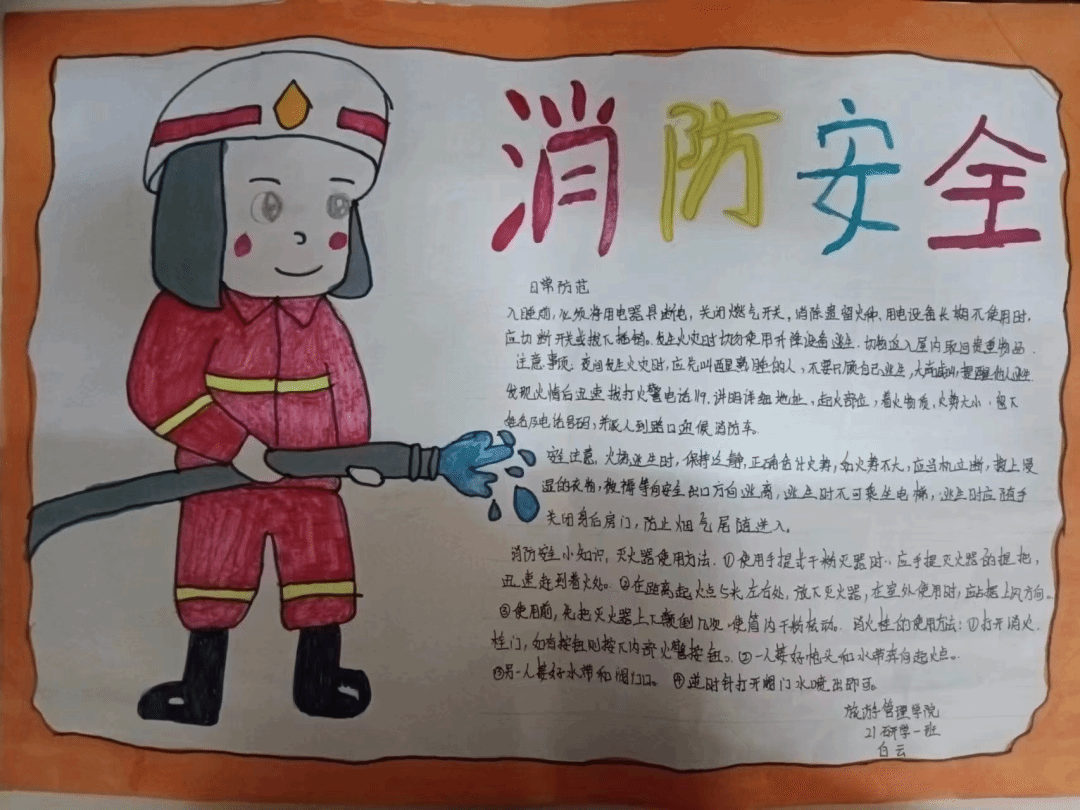 消防安全
日常防范
入睡前，必须将用电器具断电，关闭燃气开关，消除遗留火种。用电设备长期不使用时，
应切断开关或拔下插销。发生火灾时切勿使用升降设备逃生。切勿返入屋内取回贵重物品．
注意事项：夜间发生火灾时，应先叫醒熟睡的人，不要只顾自己逃生，大声喊叫，提醒他人逃生
发现火情后迅速拨打火警电话119。讲明详细地址，起火部位，着火物质，火势大小，留下
姓名及电话号码，并派人到路口迎候消防车。
安全注意，火场逃生时，保持冷静，正确估计火势，如火势不大，应当机立断，披上浸
湿的衣物，被褥等向安全出口方向逃离，逃生时不可乘坐电梯，逃生时应随手
关闭身后房门，防止烟气尾随进入。
消防安全小知识，灭火器使用方法．①使用手提式干粉灭器时，应手提灭火器的提把，
迅速赶到着火处。②在距离起火点5米左右处，放下灭火器，在室外使用时，应占据上风方向。
③使用前，先把灭火器上下颠倒几次，使筒内干粉松动。消火栓的使用方法：①打开消火
栓门，如有按钮则按下内部火警按钮。②一人接好枪头和水带奔向起火点。
③另一人接好水带和阀门口。④逆时针打开阀门水喷出即可。
旅游管理学院
21研学一班
白云